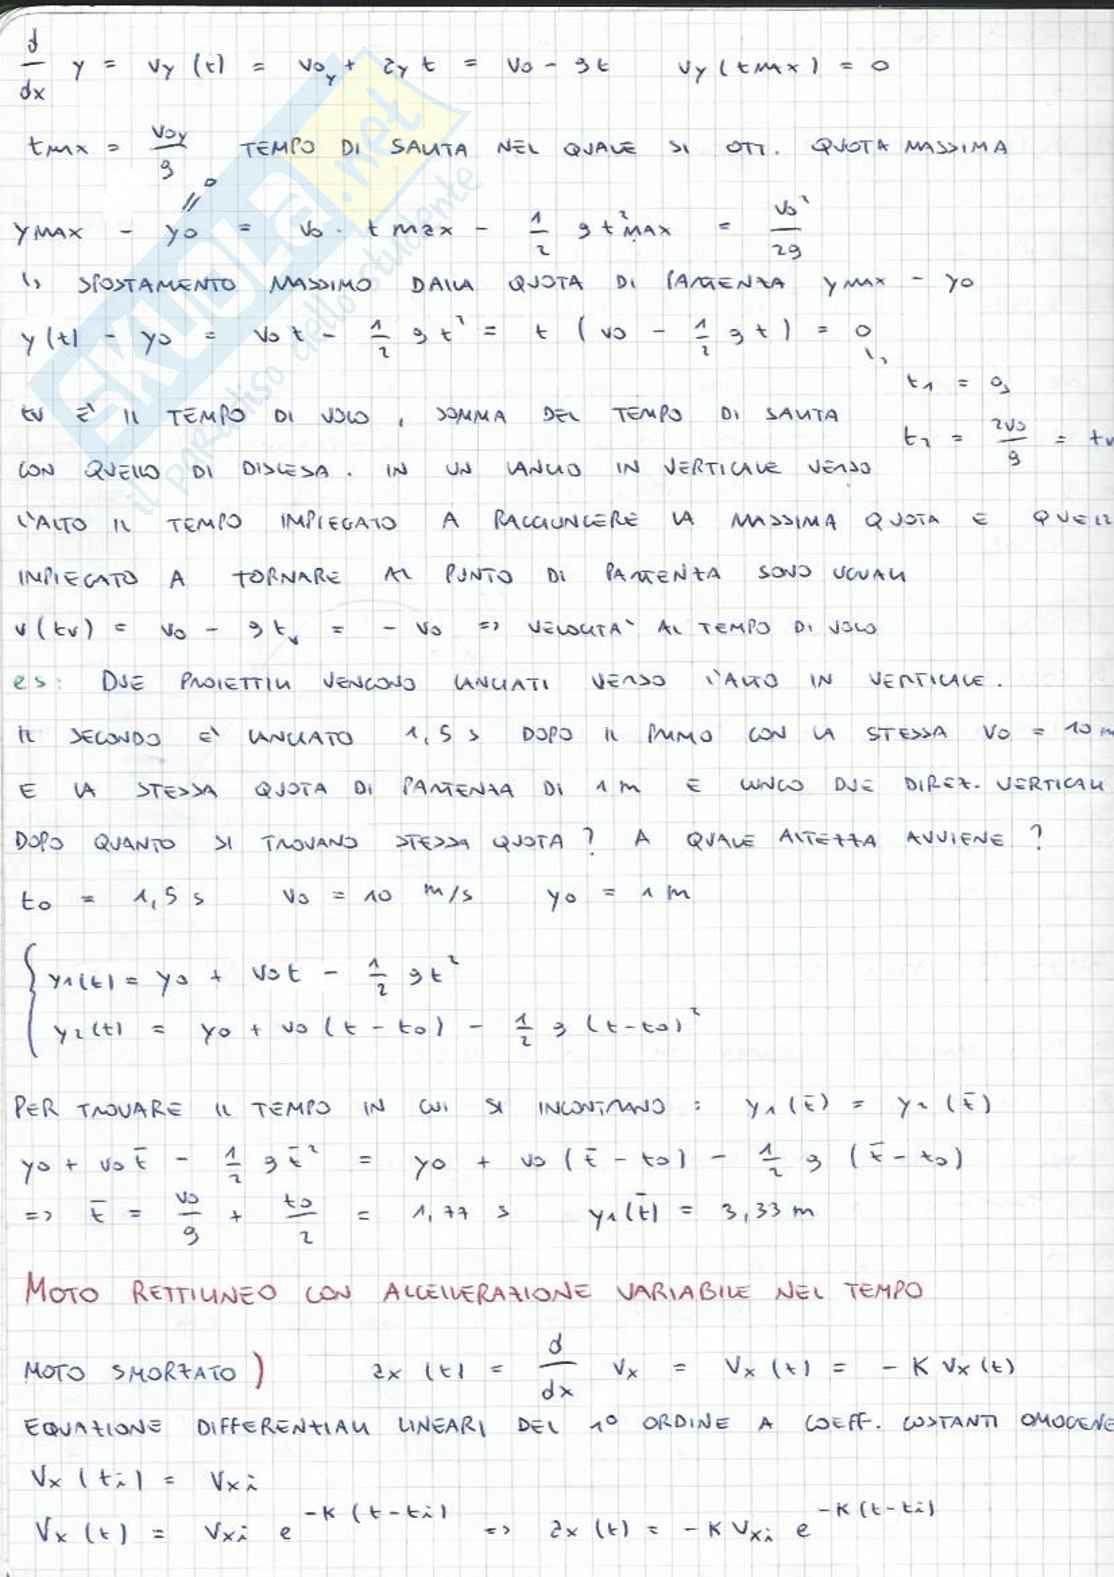 d/dx y = vy (t) = v0y + ay t = v0 - gt   vy (tmax) = 0
tmax = v0y/g   TEMPO DI SALITA NEL QUALE SI OTT. QUOTA MASSIMA
ymax - y0 = v0 · t max - 1/2 g t²max = v0²/2g
= 0
↳ SPOSTAMENTO MASSIMO DALLA QUOTA DI PARTENZA ymax - y0
y(t) - y0 = v0 t - 1/2 g t² = t (v0 - 1/2 g t) = 0
↳ t1 = 0,
tv È IL TEMPO DI VOLO, SOMMA DEL TEMPO DI SALITA
t2 = 2v0/g = tv
CON QUELLO DI DISCESA. IN UN LANCIO IN VERTICALE VERSO
L'ALTO IL TEMPO IMPIEGATO A RAGGIUNGERE LA MASSIMA QUOTA E QUELL
IMPIEGATO A TORNARE AL PUNTO DI PARTENZA SONO UGUALI
v(tv) = v0 - g tv = - v0 => VELOCITA' AL TEMPO DI VOLO
es: DUE PROIETTILI VENGONO LANCIATI VERSO L'ALTO IN VERTICALE.
IL SECONDO E' LANCIATO 1,5 s DOPO IL PRIMO CON LA STESSA V0 = 10 m
E LA STESSA QUOTA DI PARTENZA DI 1 m E LUNGO DUE DIREZ. VERTICALI
DOPO QUANTO SI TROVANO STESSA QUOTA? A QUALE ALTEZZA AVVIENE?
t0 = 1,5 s   v0 = 10 m/s   y0 = 1 m
{ y1(t) = y0 + v0t - 1/2 gt²
y2(t) = y0 + v0 (t - t0) - 1/2 g (t-t0)²
PER TROVARE IL TEMPO IN CUI SI INCONTRANO : y1(t̄) = y2(t̄)
y0 + v0 t̄ - 1/2 g t̄² = y0 + v0 (t̄ - t0) - 1/2 g (t̄ - t0)
=> t̄ = v0/g + t0/2 = 1,77 s   y1(t̄) = 3,33 m
MOTO RETTILINEO CON ACCELLERAZIONE VARIABILE NEL TEMPO
MOTO SMORZATO )   ax (t) = d/dx Vx = Vx (t) = - K Vx (t)
EQUAZIONE DIFFERENZIALI LINEARI DEL 1° ORDINE A COEFF. COSTANTI OMOGENE
Vx (ti) = Vxi
Vx (t) = Vxi e^-K(t-ti) => ax (t) = -K Vxi e^-K(t-ti)
SKUOLA.net
il paradiso dello studente